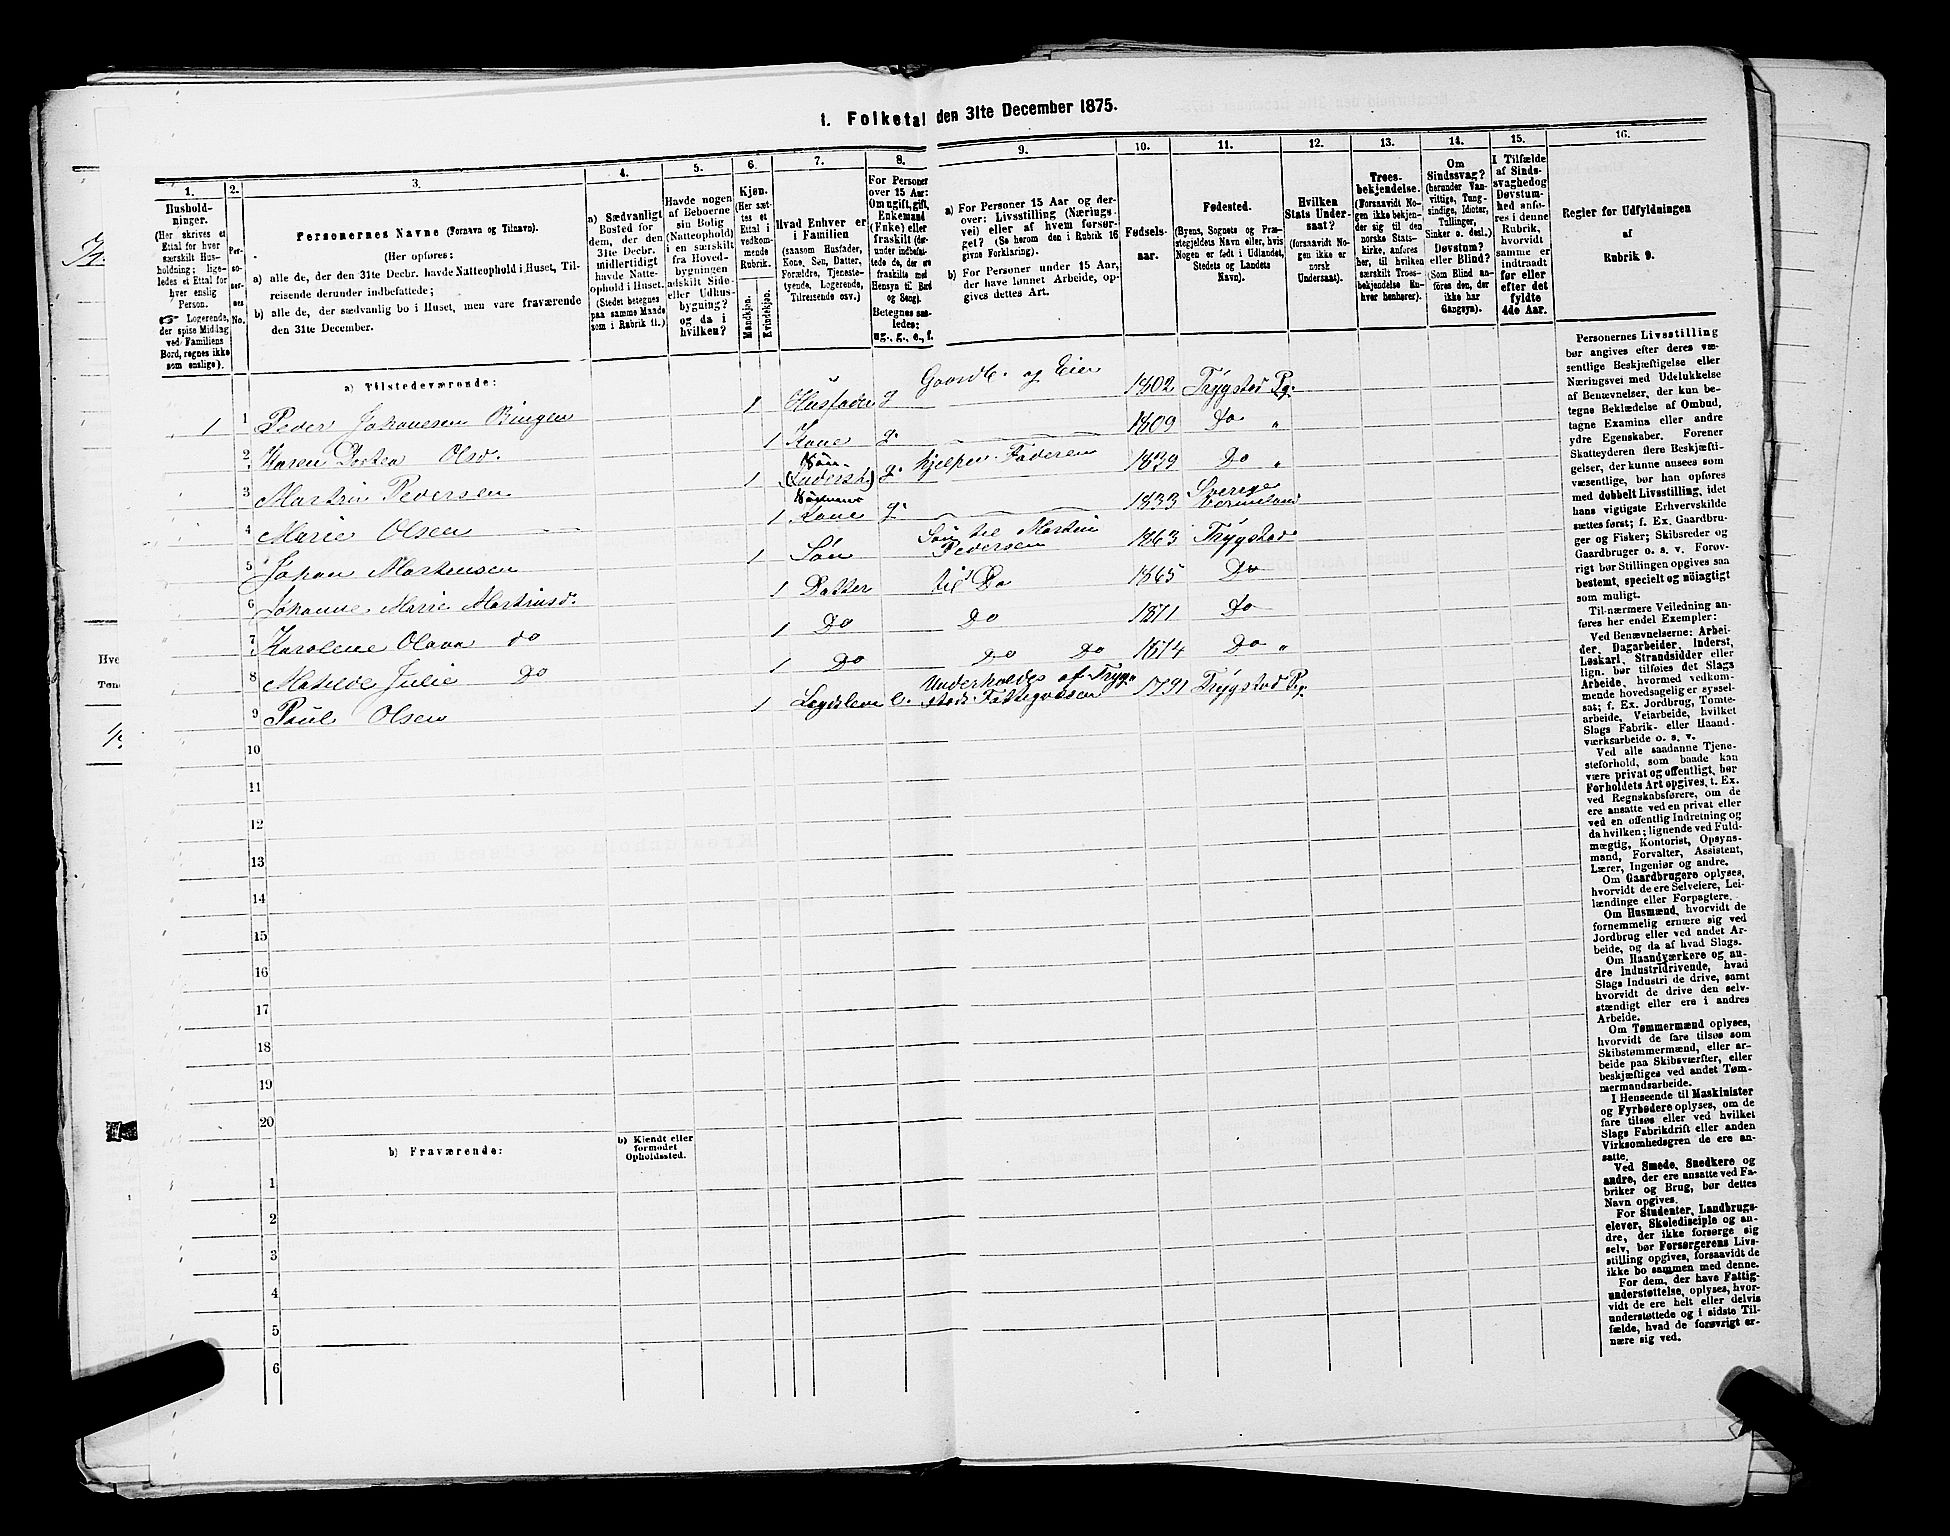 1. Folketal den 31te December 1875.
1.
2.
3.
4.
5.
6.
7.
8.
9.
10.
11.
12.
13.
14.
15.
16.
Hushold-
ninger.
(Her skrives et
Ettal for hver
særskilt Hus-
holdning; lige-
ledes et Ettal for
hver enslig
Person.
☞ Logerende,
der spise Middag
ved Familiens
Bord, regnes ikke
som enslige).
Per-
so-
ner-
nes
No.
Personernes Navne (Fornavn og Tilnavn).
(Her opføres:
a) alle de, der den 31te Decbr. havde Natteophold i Huset, Til-
reisende derunder indbefattede;
b) alle de, der sædvanlig bo i Huset, men vare fraværende
den 31te December.
a) Sædvanligt
Bosted for
dem, der den
31te Decbr.
midlertidigt
havde Natte-
ophold i Huset.
(Stedet betegnes
paa samme Maade
som i Rubrik 11.)
Havde nogen
af Beboerne
sin Bolig
(Natteophold)
i en særskilt
fra Hoved-
bygningen
adskilt Side-
eller Udhus-
bygning?
og da i
hvilken?
Kjøn.
(Her sæt-
tes et
Ettal i
vedkom-
mende
Rubrik.
Mandkjøn.
Kvindekjøn.
Hvad Enhver er
i Familien
(saasom Husfader,
Kone, Søn, Datter,
Forældre, Tjeneste-
tyende, Logerende,
Tilreisende osv.)
For Personer
over 15 Aar:
Om ugift, gift,
Enkemand
(Enke) eller
fraskilt (der-
under indbefat-
tede de, der ere
fraskilte med
Hensyn til Bord
og Seng).
Betegnes saa-
ledes:
ug., g., e., f.
a) For Personer 15 Aar og der-
over: Livsstilling (Nærings-
vei) eller af hvem forsør-
get? (Se herom den i Rubrik 16
givne Forklaring).
b) For Personer under 15 Aar,
der have lønnet Arbeide, op-
gives dettes Art.
Fødsels-
aar.
Fødested.
(Byens, Sognets og Præ-
stegjeldets Navn eller, hvis
Nogen er født i Udlandet,
Stedets og Landets
Navn).
Hvilken
Stats Under-
saat?
(forsaavidt No-
gen ikke er
norsk
Undersaat).
Troes-
bekjendelse.
(Forsaavidt No-
gen ikke bekjen-
der sig til den
norske Stats-
kirke, anføres
her, til hvilken
særskilt Troes-
bekjendelse En-
hver henhører).
Om
Sindssvag?
(herunder Van-
vittige, Tung-
sindige, Idioter,
Tullinger,
Sinker o. desl.)
Døvstum?
eller Blind?
(Som Blind an-
føres den, der
ikke har
Gangsyn).
I Tilfælde
af Sinds-
svaghed og
Døvstum-
hed anfø-
res i denne
Rubrik,
hvorvidt
samme er
indtraadt
før eller
efter det
fyldte
4de Aar.
Regler for Udfyldningen
af
Rubrik 9.
a) Tilstedeværende:
1 1 Peder Johanesen Bingen 1 Husfader g Gaardb. og Eier 1802 Trygstad Pg.
2 Karen Dortea Olsd. 1 Kone g. 1809 Do "
3 Martin Pedersen 1 Søn (Inderst.) g. hjelper Faderen 1839 Do "
4 Marie Olsen 1 Sønnens Kone g. 1833 Sverige Vermeland
5 Johan Martensen 1 Søn Søn til Martin Pedersen 1863 Trygstad
6 Johanne Marie Martinsd. 1 Datter til Do 1865 Do
7 Karolene Olava do 1 Do Do 1871 Do
8 Matilde Julie Do 1 Do Do Do 1874 Do "
9 Paul Olsen 1 Lægdslem e. Underholdes af Tryg-
stads Fattigvæsen 1791 Trygstad Pg.
10
11
12
13
14
15
16
17
18
19
20
b) Fraværende:
b) Kjendt eller
formodet
Opholdssted.
1
2
3
4
5
6
Personernes Livsstilling
bør angives efter deres væ-
sentlige Beskjæftigelse eller
Næringsvei med Udelukkelse
af Benævnelser, der kun be-
tegne Beklædelse af Ombud,
tagne Examina eller andre
ydre Egenskaber. Forener
Skatteyderen flere Beskjæfti-
gelser, der kunne ansees som
væsentlige, bør han opføres
med dobbelt Livsstilling, idet
hans vigtigste Erhvervskilde
sættes først; f. Ex. Gaardbru-
ger og Fisker; Skibsreder og
Gaardbruger o. s. v. Forøv-
rigt bør Stillingen opgives saa
bestemt, specielt og nöiagtigt
som muligt.
Til nærmere Veiledning an-
føres her endel Exempler:
Ved Benævnelserne: Arbei-
der, Dagarbeider, Inderst,
Løskarl, Strandsidder eller
lign. bør tilføies det Slags
Arbeide, hvormed vedkom-
mende hovedsagelig er syssel-
sat; f. Ex. Jordbrug, Tomte-
arbeide, Veiarbeide, hvilket
Slags Fabrik- eller Haand-
værksarbeide o. s. v.
Ved alle saadanne Tjene-
steforhold, som baade kan
være privat og offentligt, bør
Forholdets Art opgives, t. Ex.
ved Regnskabsførere, om de
ere ansatte ved en privat eller
ved en offentlig Indretning og
da hvilken; lignende ved Fuld-
mægtig, Kontorist, Opsyns-
mand, Forvalter, Assistent,
Lærer, Ingeniør og andre.
Om Gaardbrugere oplyses,
hvorvidt de ere Selveiere, Lei-
lændinge eller Forpagtere.
Om Husmænd, hvorvidt de
fornemmelig ernære sig ved
Jordbrug eller ved andet Ar-
beide, og da af hvad Slags.
Om Haandværkere og an-
dre Industridrivende, hvad
Slags Industri de drive, samt
hvorvidt de drive den selv-
stændigt eller ere i andres
Arbeide.
Om Tømmermænd oplyses,
hvorvidt de fare tilsøs som
Skibstømmermænd, eller ar-
beide paa Skibsværfter, eller
beskjæftiges ved andet Tøm-
mermandsarbeide.
I Henseende til Maskinister
og Fyrbødere oplyses, om de
fare tilsøs eller ved hvilket
Slags Fabrikdrift eller anden
Virksomhedsgren de ere an-
satte.
Ved Smede, Snedkere og
andre, der ere ansatte ved Fa-
briker og Brug, bør dettes
Navn opgives.
For Studenter, Landbrugs-
elever, Skoledisciple og an-
dre, der ikke forsørge sig
selv, bør Forsørgerens Livs-
stilling opgives, forsaavidt de
ikke bo sammen med denne.
For dem, der have Fattig-
understøttelse, oplyses, hvor-
vidt de ere helt eller delvis
understøttede og i sidste Til-
fælde, hvad de forøvrigt er-
nære sig ved.